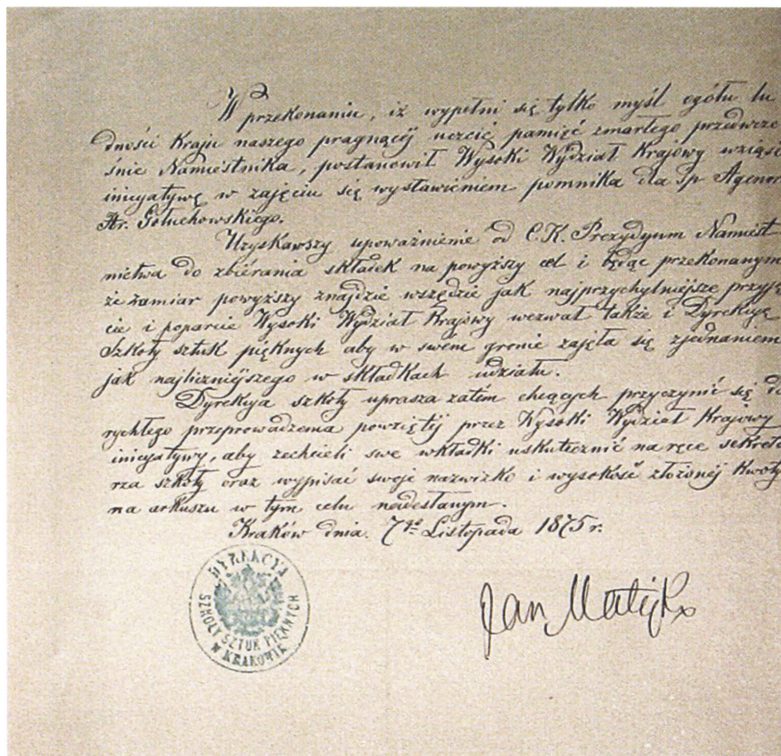 W przekonaniu, iż wypełni się tylko myśl ogółu lu
dności Kraju naszego pragnącéj uczcić pamięć zmarłego przedwcze
śnie Namiestnika, postanowił Wysoki Wydział Krajowy wziąść
inicyatywę w zajęciu się wystawieniem pomnika dla śp Agenor
Hr. Gołuchowskiego.
Uzyskawszy upoważnienie od C.K. Prezydyum Namiest
nictwa do zbiérania składek na powyższy cel i będąc przekonanym
że zamiar powyższy znajdzie wszędzie jak najprzychylniejsze przyję
cie i poparcie Wysoki Wydział Krajowy wezwał także i Dyrekcyę
Szkoły sztuk pięknych aby w swem gronie zajęła się zjednaniem
jak najliczniejszego w składkach udziału.
Dyrekcya szkoły uprasza zatem chcących przyczynić się d
rychłego przeprowadzenia powziętéj przez Wysoki Wydział Krajowy
inicyatywy, aby zechcieli swe wkładki uskutecznić na ręce sekreta
rza szkoły oraz wypisać swoje nazwisko i wysokość złożonéj kwoty
na arkuszu w tym celu nadesłanym.
Kraków dnia 7go Listopada 1875 r.
DYREKCYA
SZKOŁY SZTUK PIĘKNYCH
W KRAKOWIE
Jan Matejko